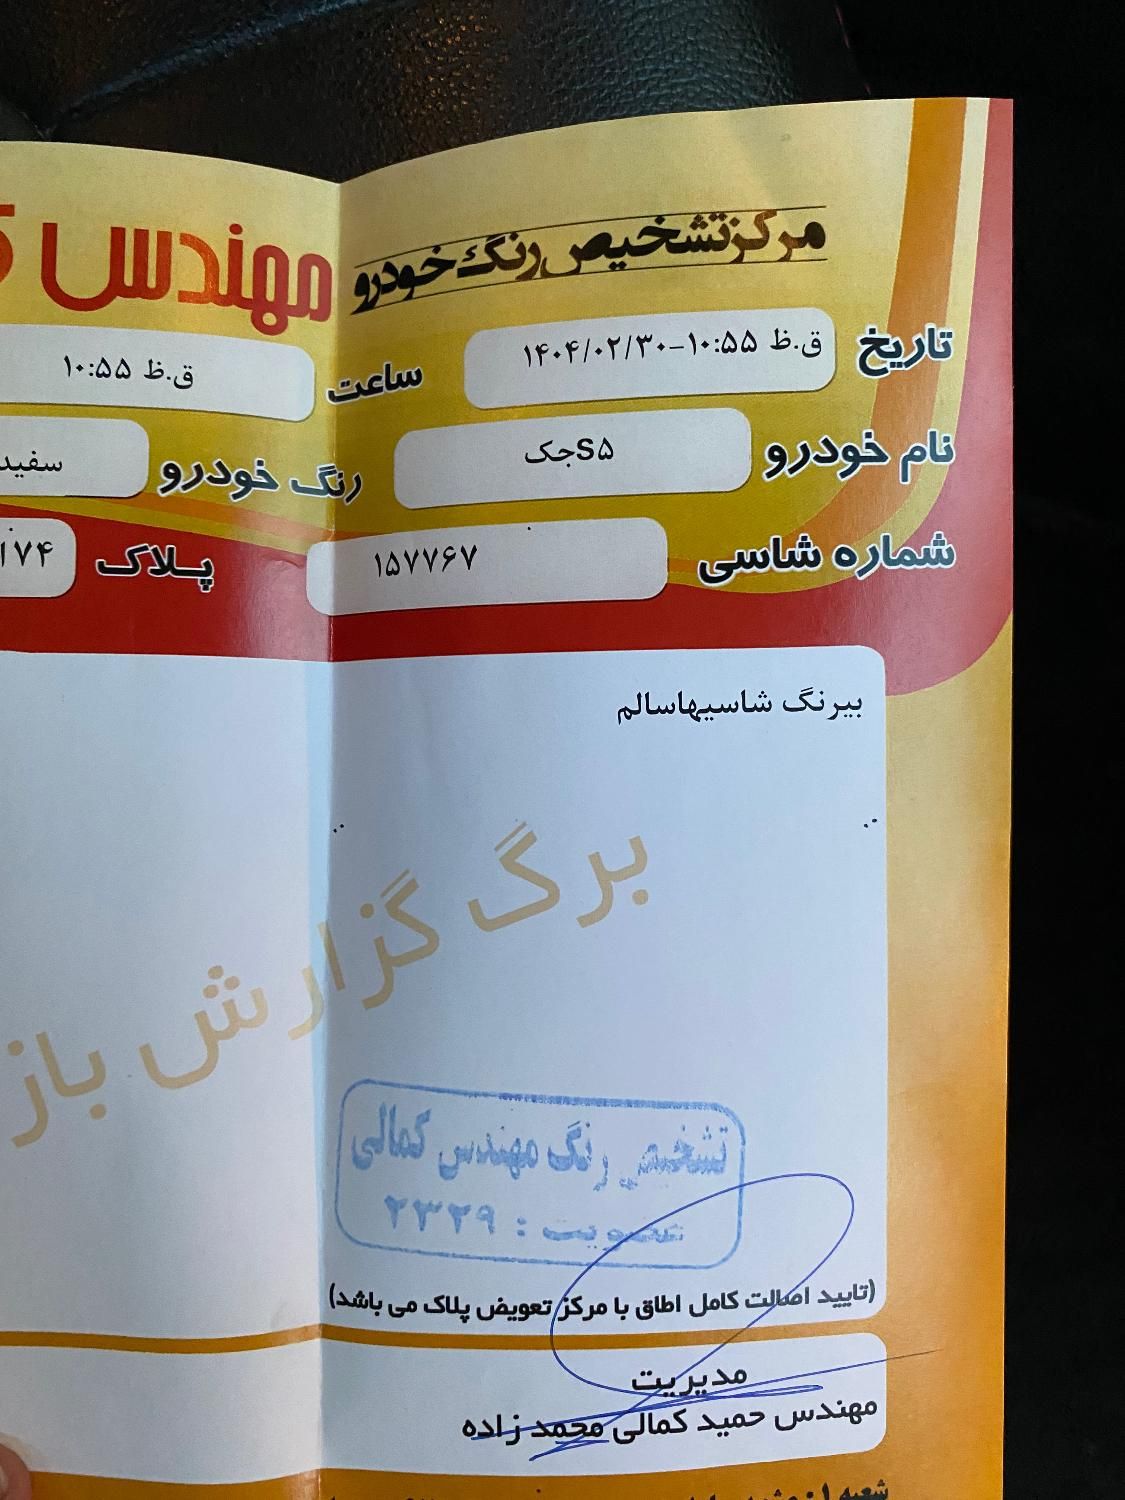 مرکز تشخیص رنگ خودرو
مهندس
تاریخ ۱۴۰۴/۰۲/۳۰-۱۰:۵۵ ق.ظ ساعت ۱۰:۵۵ ق.ظ
نام خودرو جکS۵ رنگ خودرو سفید
شماره شاسی ۱۵۷۷۶۷ پلاک ۱۷۴
بیرنگ شاسیهاسالم
برگ گزارش باز
تشخیص رنگ مهندس کمالی
عضویت : ۲۳۲۹
(تایید اصالت کامل اطاق با مرکز تعویض پلاک می باشد)
مدیریت
مهندس حمید کمالی محمد زاده
شعبه ۱ :